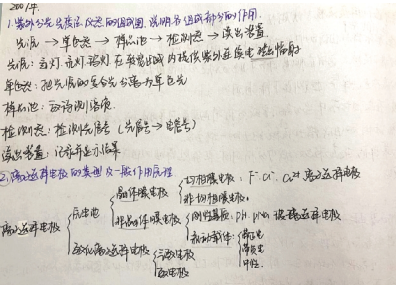 2001年
1.紫外分光光度计仪器的组成图,说明各组成部分的作用.
光源 → 单色器 → 样品池 → 检测器 → 读出装置.
光源:
单色器:把光源的复合光分离为单色光
样品池:
检测器:检测光信号(光信号→电信号)
读出装置:记录并显示结果
2.离子选择电极的类型及一般作用原理
离子选择电极
原电极
晶体膜电极
均相膜电极: F⁻ Cl⁻ Cu²⁺ 离子选择电极
非均相膜电极.
非晶体膜电极
刚性基质: pH. pNa 玻璃选择电极
流动载体:
带正电
带负电
中性.
敏化离子选择电极
气敏电极
酶电极